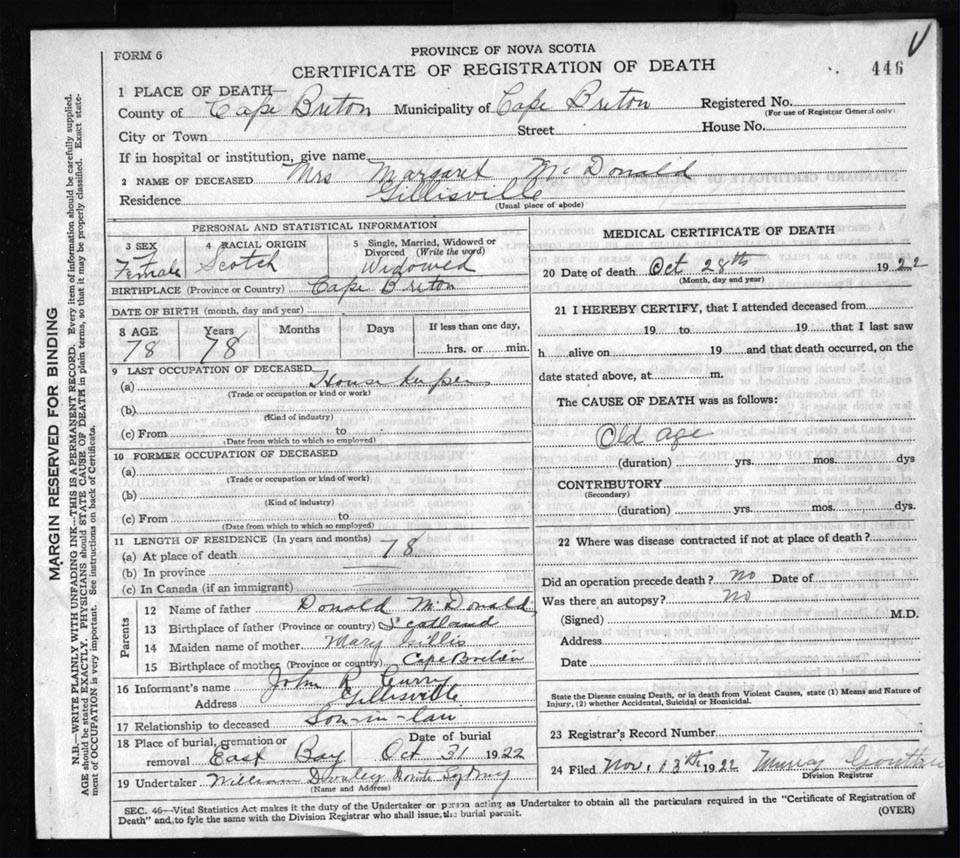 FORM 6
PROVINCE OF NOVA SCOTIA
CERTIFICATE OF REGISTRATION OF DEATH
446
1 PLACE OF DEATH—
County of Cape Breton Municipality of Cape Breton Registered No.
(For use of Registrar General only)
City or Town Street House No.
If in hospital or institution, give name
2 NAME OF DECEASED Mrs Margaret McDonald
Residence Gillisville
(Usual place of abode)
PERSONAL AND STATISTICAL INFORMATION
3 SEX 4 RACIAL ORIGIN 5 Single, Married, Widowed or Divorced (Write the word)
Female Scotch Widowed
BIRTHPLACE (Province or Country) Cape Breton
DATE OF BIRTH (month, day and year)
8 AGE Years Months Days If less than one day,
78 78 hrs. or min.
9 LAST OCCUPATION OF DECEASED
(a) House keeper
(Trade or occupation or kind or work)
(b)
(Kind of industry)
(c) From to
(Date from which to which so employed)
10 FORMER OCCUPATION OF DECEASED
(a)
(Trade or occupation or kind of work)
(b)
(Kind of industry)
(c) From to
(Date from which to which so employed)
11 LENGTH OF RESIDENCE (In years and months) 78
(a) At place of death
(b) In province
(c) In Canada (if an immigrant)
Parents
12 Name of father Donald McDonald
13 Birthplace of father (Province or country) Scotland
14 Maiden name of mother Mary Gillis
15 Birthplace of mother (Province or country) Cape Breton
16 Informant's name John R Curry
Address Gillisville
17 Relationship to deceased Son-in-law
18 Place of burial, cremation or removal East Bay Date of burial Oct 31 1922
19 Undertaker William Sydney
(Name and Address)
MEDICAL CERTIFICATE OF DEATH
20 Date of death Oct 28th 1922
(Month, day and year)
21 I HEREBY CERTIFY, that I attended deceased from
19 to 19 that I last saw
h alive on 19 and that death occurred, on the
date stated above, at m.
The CAUSE OF DEATH was as follows:
Old age
(duration) yrs. mos. dys
CONTRIBUTORY
(Secondary)
(duration) yrs. mos. dys.
22 Where was disease contracted if not at place of death?
Did an operation precede death? No Date of
Was there an autopsy? No
(Signed) M.D.
Address
Date
State the Disease causing Death, or in death from Violent Causes, state (1) Means and Nature of
Injury, (2) whether Accidental, Suicidal or Homicidal.
23 Registrar's Record Number
24 Filed Nov. 13th 1922 Murray
Division Registrar
SEC. 46—Vital Statistics Act makes it the duty of the Undertaker or person acting as Undertaker to obtain all the particulars required in the "Certificate of Registration of
Death" and to fyle the same with the Division Registrar who shall issue the burial permit. (OVER)
MARGIN RESERVED FOR BINDING
N.B.—WRITE PLAINLY, WITH UNFADING INK—THIS IS A PERMANENT RECORD. Every item of information should be carefully supplied.
AGE should be stated EXACTLY. PHYSICIANS should STATE CAUSE OF DEATH in plain terms, so that it may be properly classified. Exact state-
ment of OCCUPATION is very important. See instructions on back of Certificate.